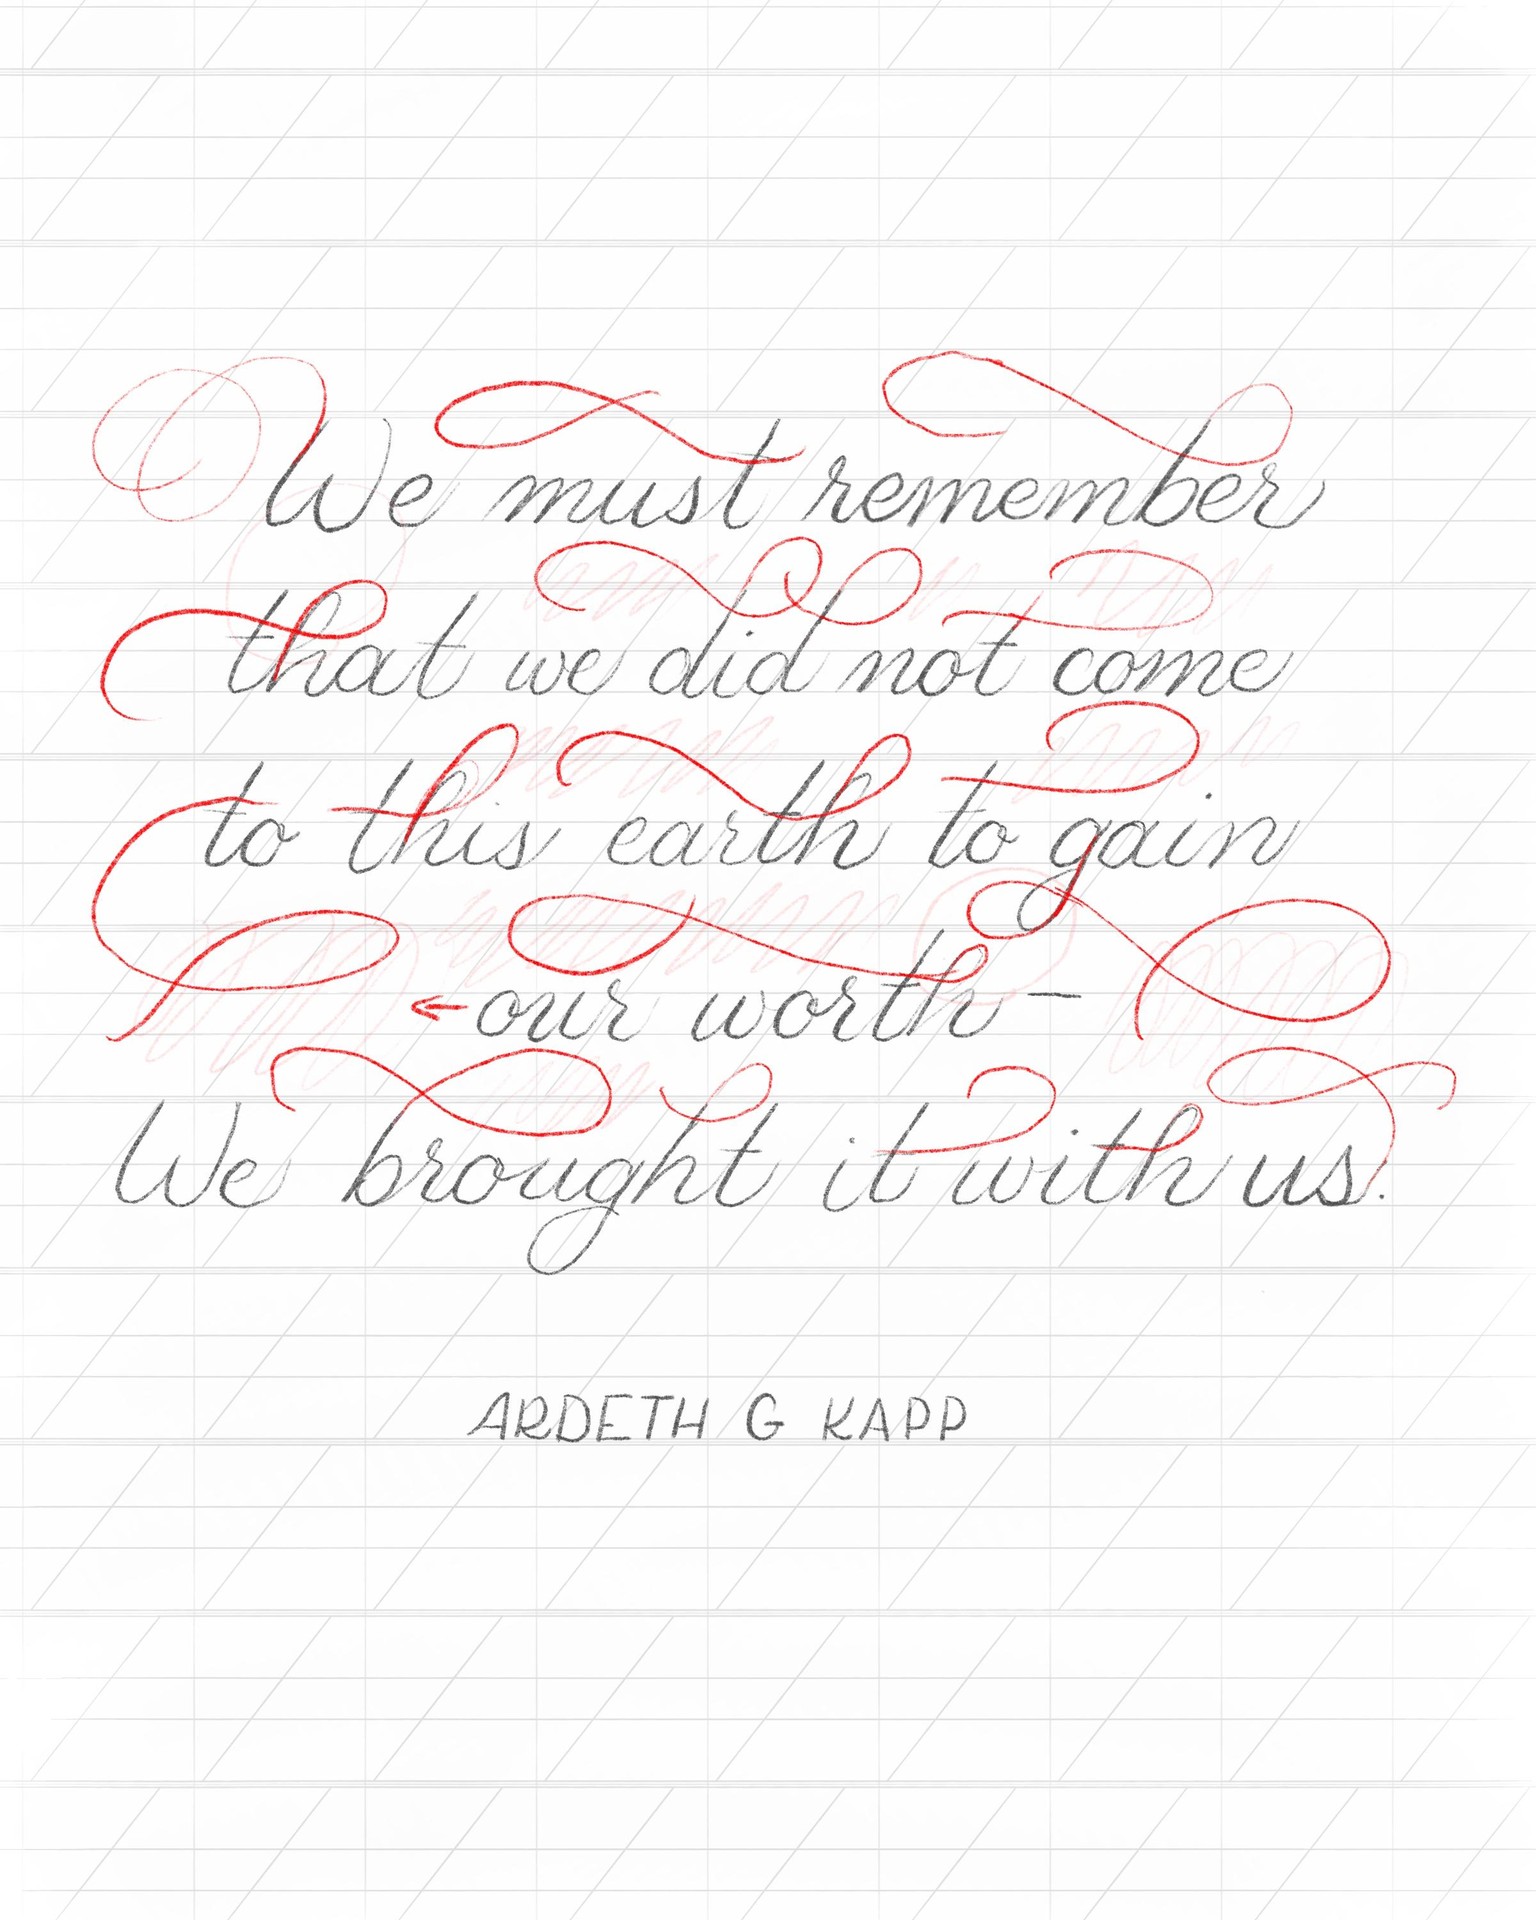 We must remember
that we did not come
to this earth to gain
our worth –
We brought it with us.
ARDETH G KAPP